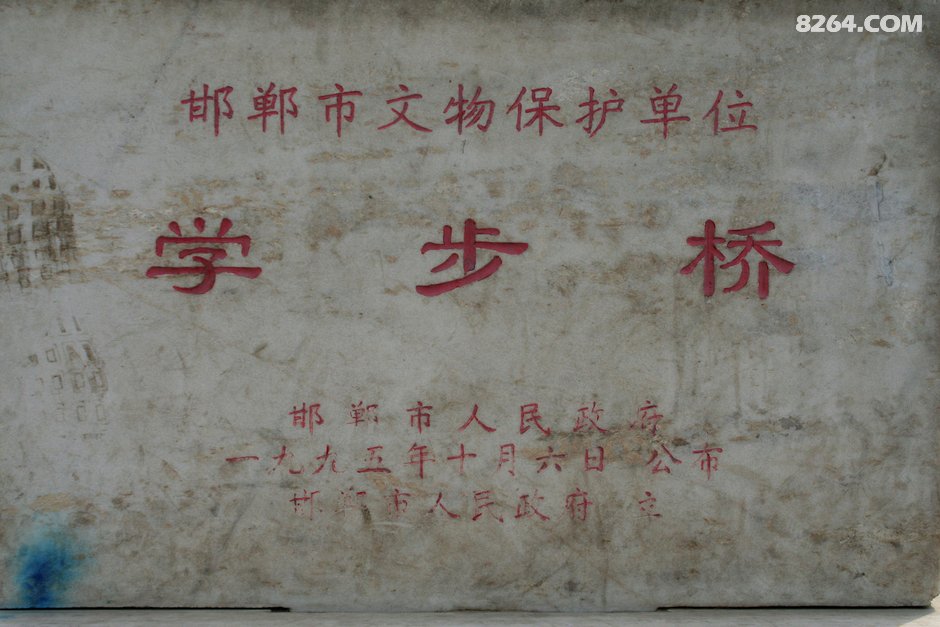 8264.COM
邯郸市文物保护单位
学步桥
邯郸市人民政府
一九九五年十月六日 公布
邯郸市人民政府 立